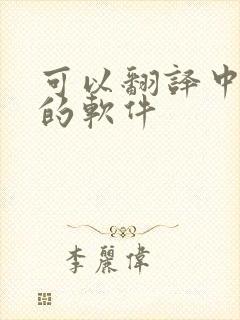 可以翻譯中
的軟件
李麗偉